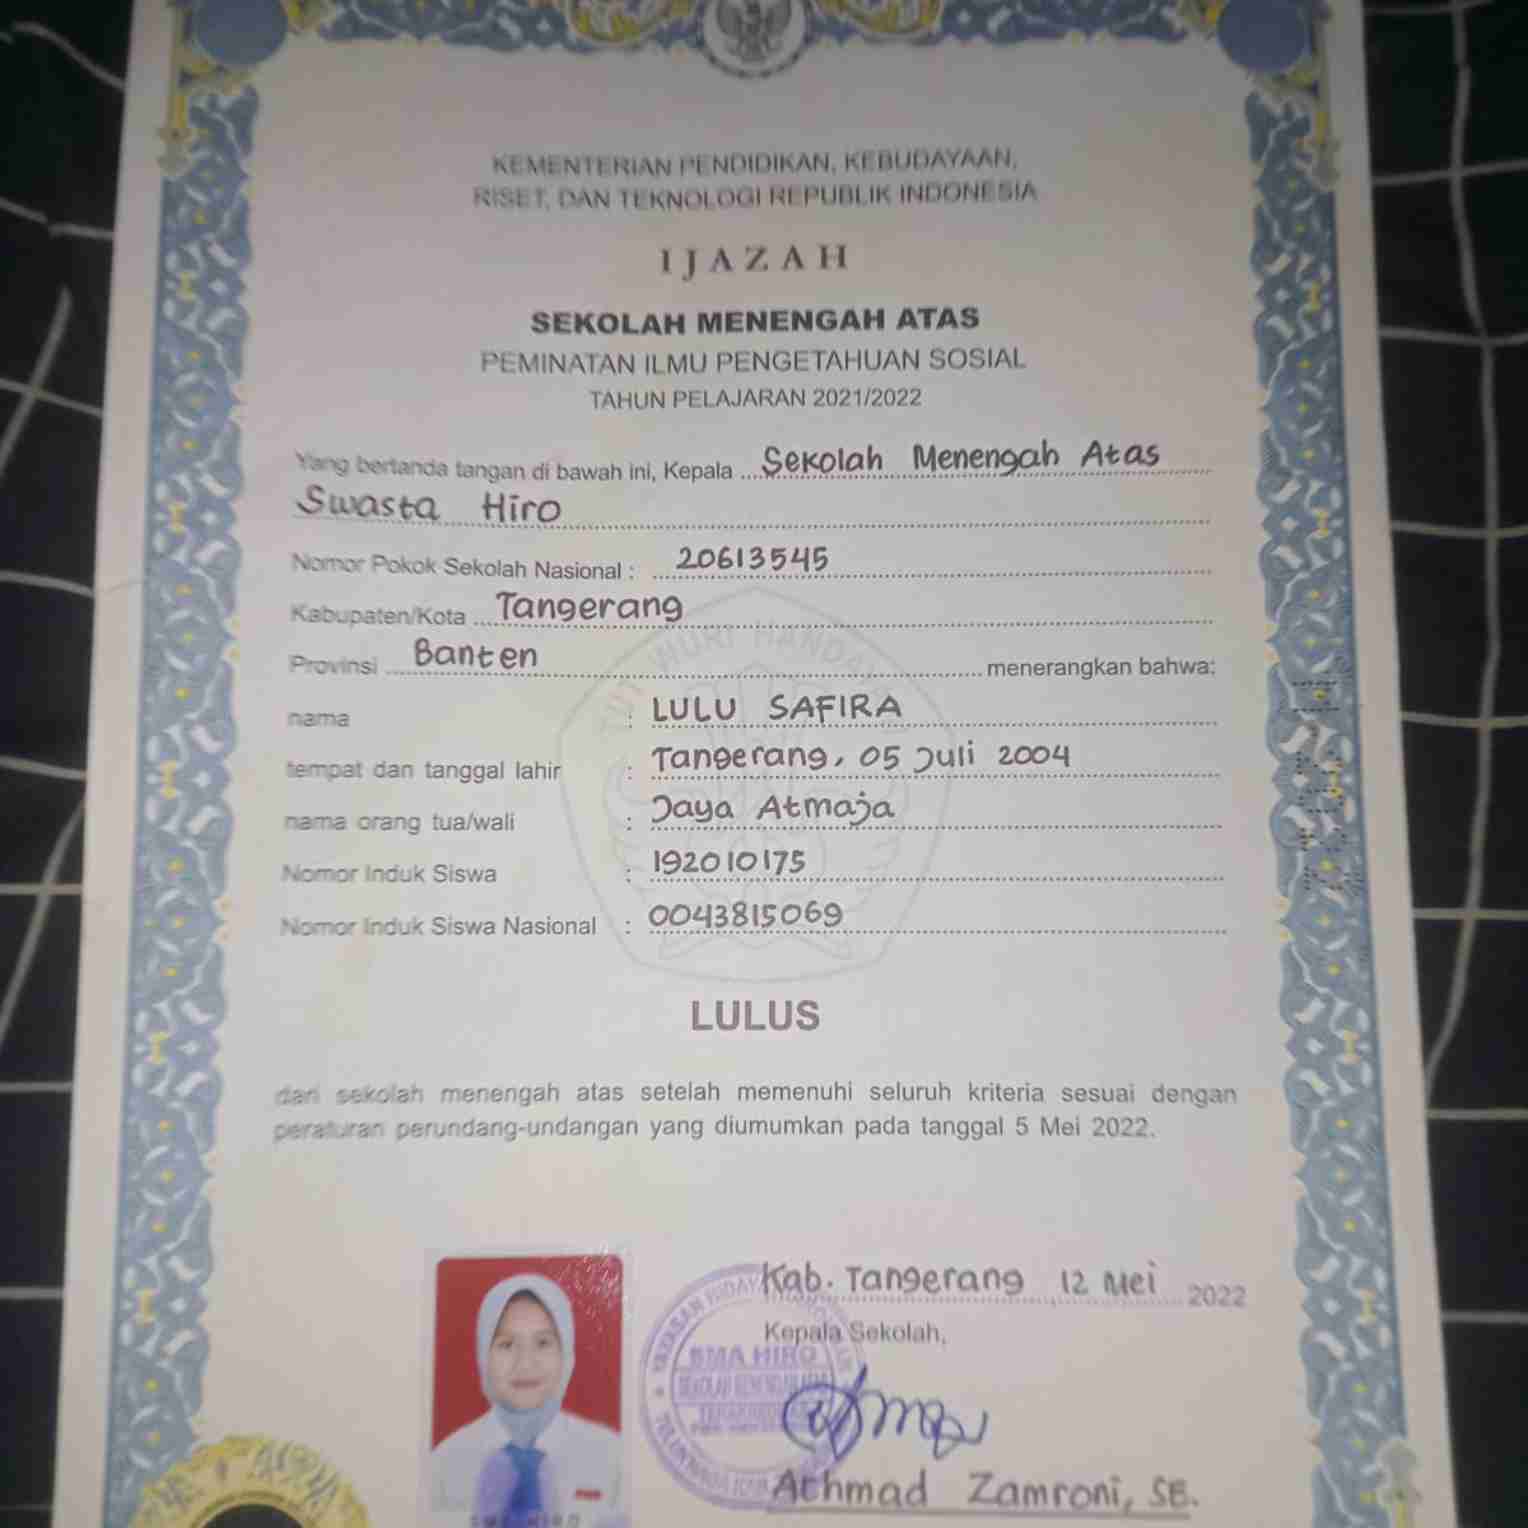 KEMENTERIAN PENDIDIKAN, KEBUDAYAAN,
RISET, DAN TEKNOLOGI REPUBLIK INDONESIA
IJAZAH
SEKOLAH MENENGAH ATAS
PEMINATAN ILMU PENGETAHUAN SOSIAL
TAHUN PELAJARAN 2021/2022
Yang bertanda tangan di bawah ini, Kepala Sekolah Menengah Atas
Swasta Hiro
Nomor Pokok Sekolah Nasional : 20613545
Kabupaten/Kota Tangerang
Provinsi Banten menerangkan bahwa:
nama : LULU SAFIRA
tempat dan tanggal lahir : Tangerang, 05 Juli 2004
nama orang tua/wali : Jaya Atmaja
Nomor Induk Siswa : 192010175
Nomor Induk Siswa Nasional : 0043815069
LULUS
dari sekolah menengah atas setelah memenuhi seluruh kriteria sesuai dengan
peraturan perundang-undangan yang diumumkan pada tanggal 5 Mei 2022.
Kab. Tangerang, 12 Mei 2022
Kepala Sekolah,
SMA HIRO
Athmad Zamroni, SE.
SMA HIRO